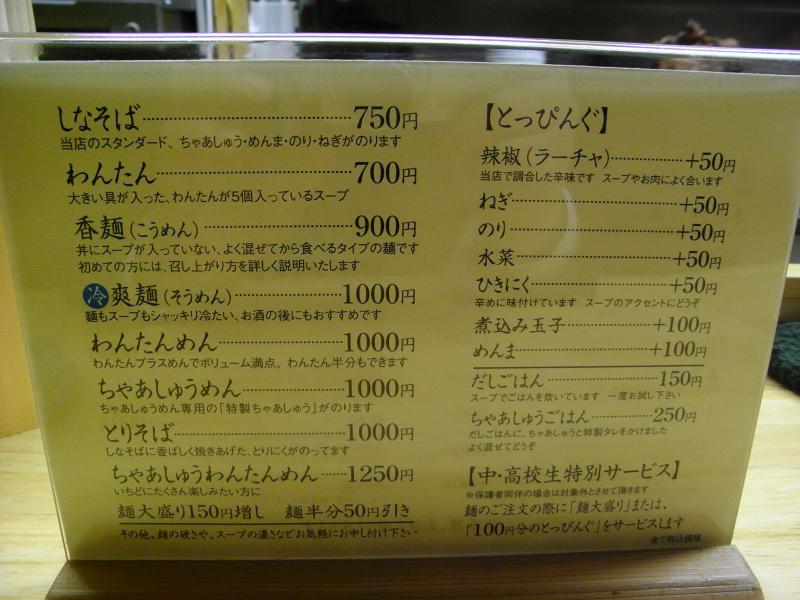 しなそば 750円
当店のスタンダード、ちゃあしゅう・めんま・のり・ねぎがのります
わんたん 700円
大きい具が入った、わんたんが5個入っているスープ
香麺(こうめん) 900円
丼にスープが入っていない、よく混ぜてから食べるタイプの麺です
初めての方には、召し上がり方を詳しく説明いたします
冷 爽麺(そうめん) 1000円
麺もスープもシャッキリ冷たい、お酒の後にもおすすめです
わんたんめん 1000円
わんたんプラスめんでボリューム満点、わんたん半分もできます
ちゃあしゅうめん 1000円
ちゃあしゅうめん専用の「特製ちゃあしゅう」がのります
とりそば 1000円
しなそばに香ばしく焼きあげた、とりにくがのってます
ちゃあしゅうわんたんめん 1250円
いちどにたくさん楽しみたい方に
麺大盛り150円増し 麺半分50円引き
その他、麺の硬さや、スープの濃さなどお気軽にお申し付け下さい
【とっぴんぐ】
辣椒(ラーチャ) +50円
当店で調合した辛味です スープやお肉によく合います
ねぎ +50円
のり +50円
水菜 +50円
ひきにく +50円
辛めに味付けています スープのアクセントにどうぞ
煮込み玉子 +100円
めんま +100円
だしごはん 150円
スープでごはんを炊いています 一度お試し下さい
ちゃあしゅうごはん 250円
だしごはんに、ちゃあしゅうと特製タレをかけました
よく混ぜてどうぞ
【中・高校生特別サービス】
※保護者同伴の場合は対象外とさせて頂きます
麺のご注文の際に「麺大盛り」または、
「100円分のとっぴんぐ」をサービスします
全て税込価格